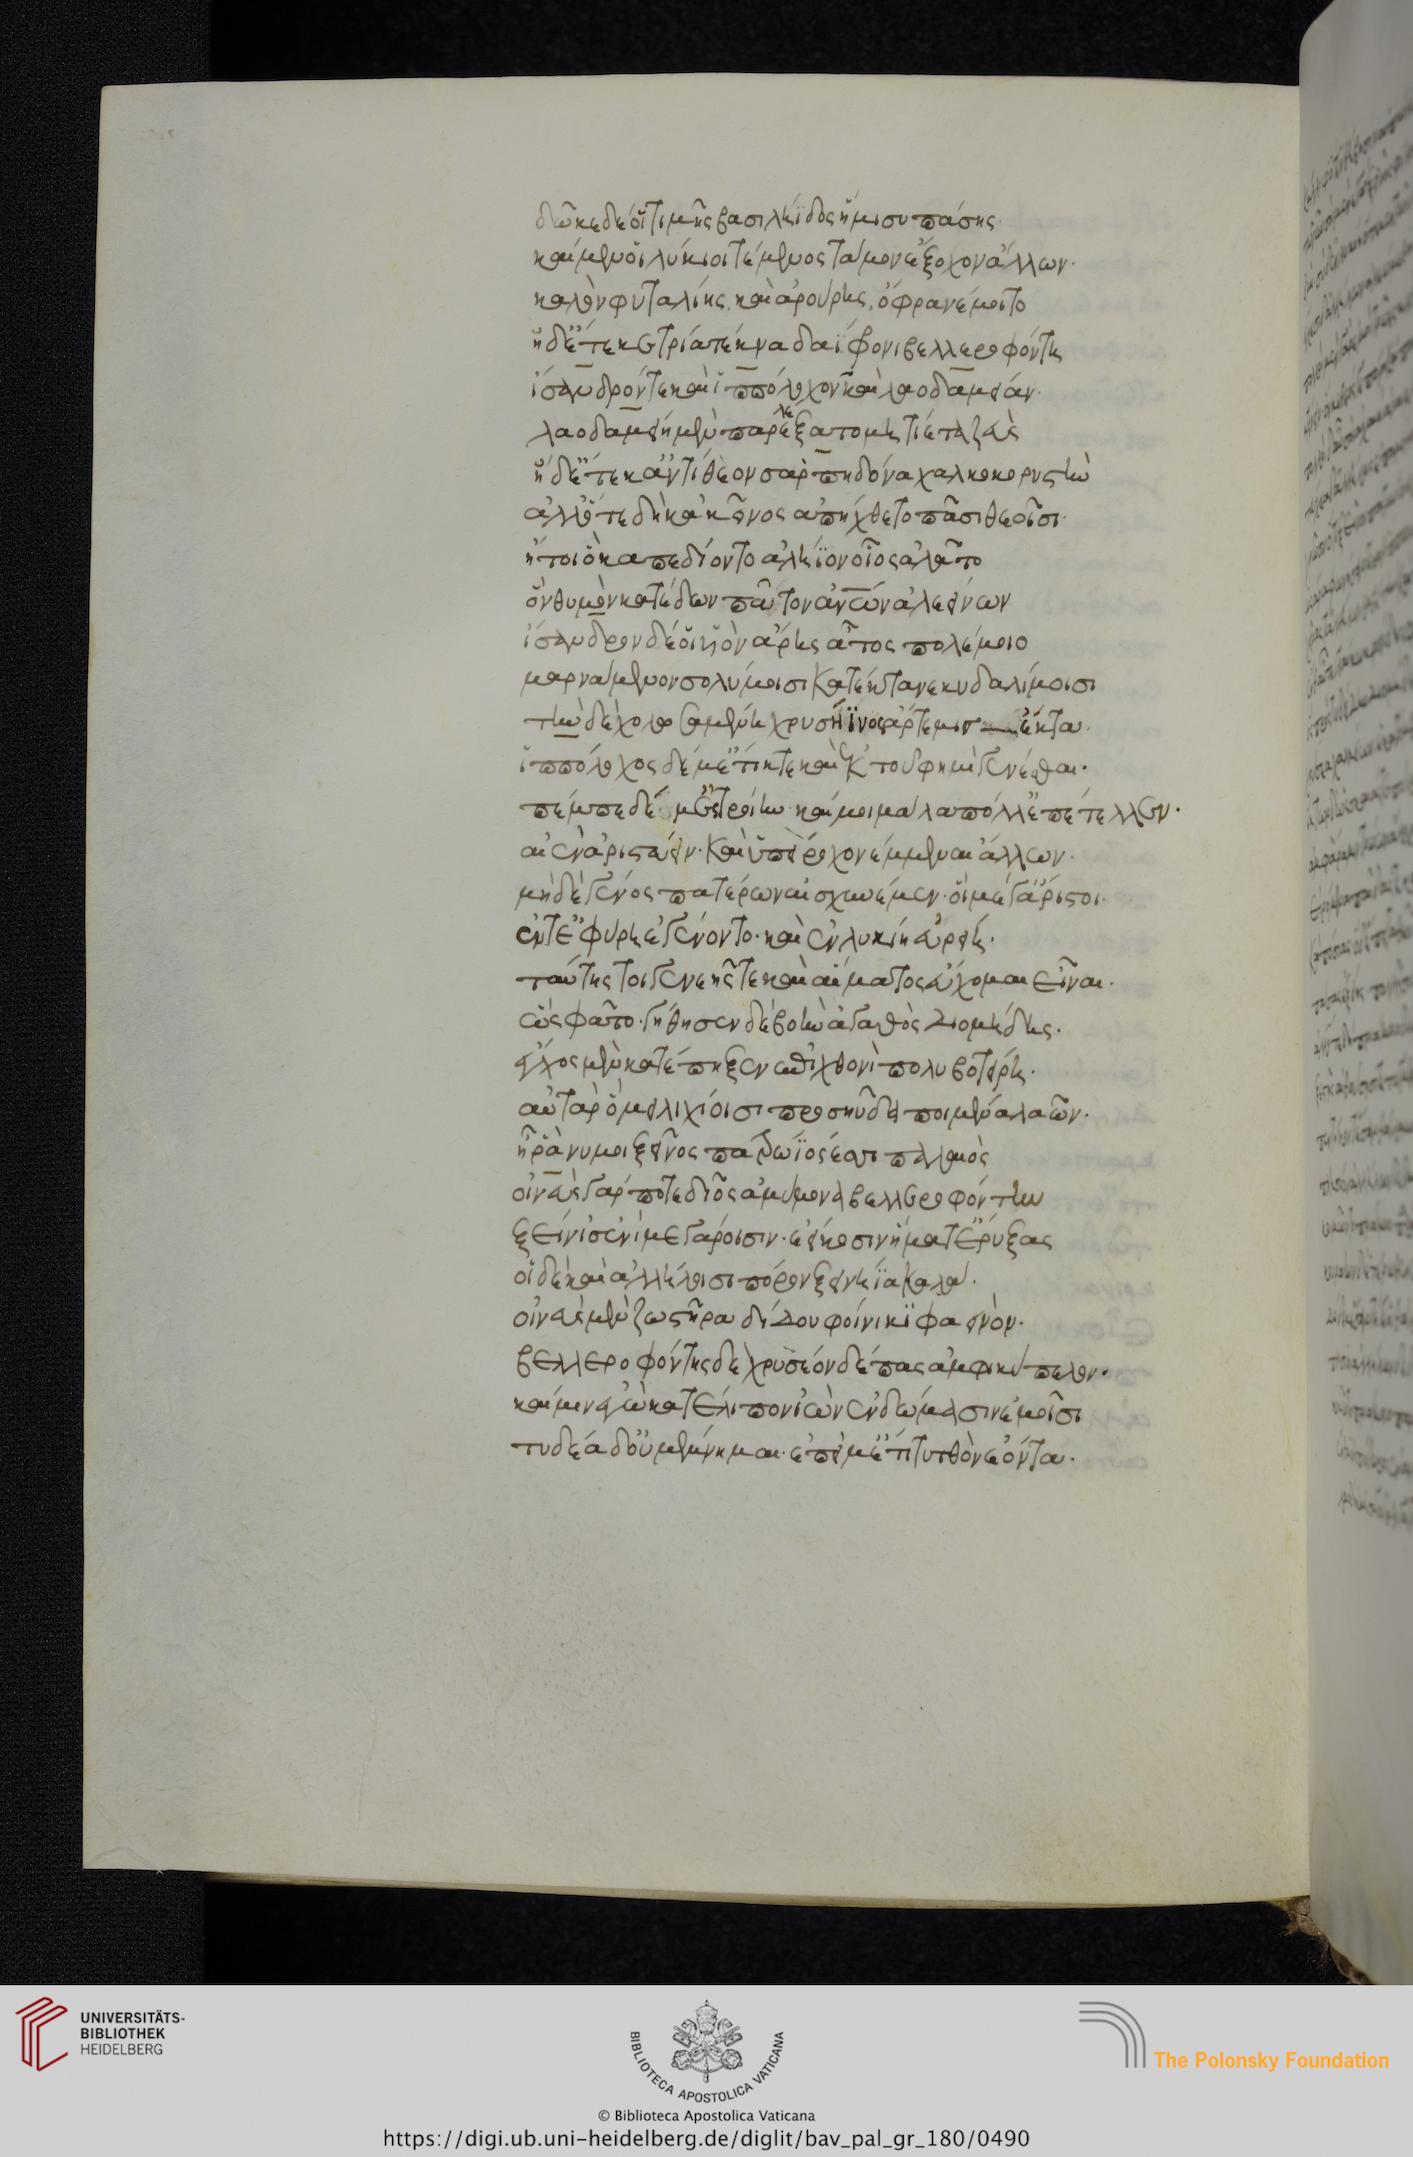 δῶκε δέ οἱ τιμῆς βασιληΐδος ἥμισυ πάσης
καὶ μέν οἱ λύκιοι τέμενος τάμον ἔξοχον ἄλλων·
καλὸν φυταλιῆς, καὶ ἀρούρης, ὄφρα νέμοιτο
ἡ δ' ἔτεκε τρία τέκνα δαΐφρονι βελλεροφόντῃ
ἴσανδρόν τε καὶ ἱππόλοχον καὶ λαοδάμειαν·
λαοδαμείῃ μὲν παρελέξατο μητίετα ζεὺς
ἡ δ' ἔτεκ' ἀντίθεον σαρπηδόνα χαλκοκορυστὴν
ἀλλ' ὅτε δὴ καὶ κεῖνος ἀπήχθετο πᾶσι θεοῖσι·
ἤτοι ὃ καπεδίον τὸ ἀλήϊον οἶος ἀλᾶτο
ὃν θυμὸν κατέδων πάτον ἀνων ἀλεείνων
ἴσανδρον δέ οἱ υἱὸν ἄρης ἆτος πολέμοιο
μαρνάμενον σολύμοισι κατέκτανε κυδαλίμοισι
τὴν δὲ χολωσαμένη χρυσήϊνος ἄρτεμις ἔκτα·
ἱππόλοχος δέ μ' ἔτικτε καὶ ἐκ τοῦ φημὶ γενέσθαι·
πέμπε δέ μ' ἐς τροίην καί μοι μάλα πόλλ' ἐπέτελλεν·
αἰὲν ἀριστεύειν· καὶ ὑπείροχον ἔμμεναι ἄλλων·
μηδὲ γένος πατέρων αἰσχυνέμεν· οἳ μέγ' ἄριστοι·
ἔν τ' ἐφύρῃ ἐγένοντο· καὶ ἐν λυκίῃ εὐρείῃ·
ταύτης τοι γενεῆς τε καὶ αἵματος εὔχομαι εἶναι·
ὣς φάτο· γήθησεν δὲ βοὴν ἀγαθὸς διομήδης·
ἔγχος μὲν κατέπηξεν ἐπὶ χθονὶ πολυβοτείρῃ·
αὐτὰρ ὃ μειλιχίοισι προσηύδα ποιμένα λαῶν·
ἦ ῥά νύ μοι ξεῖνος πατρώϊός ἐσσι παλαιὸς
οἰνεὺς γάρ ποτε δῖος ἀμύμονα βελλεροφόντην
ξείνισ' ἐνὶ μεγάροισιν· ἐείκοσιν ἤματ' ἐρύξας
οἳ δὲ καὶ ἀλλήλοισι πόρον ξεινήϊα καλά·
οἰνεὺς μὲν ζωστῆρα δίδου φοίνικι φαεινόν·
βελλεροφόντης δὲ χρύσεον δέπας ἀμφικύπελλον·
καί μιν ἐγὼ κατέλιπον ἰὼν ἐν δώμασιν ἐμοῖσι
τυδέα δ' οὐ μέμνημαι· ἐπεί μ' ἔτι τυτθὸν ἐόντα·
UNIVERSITÄTS-
BIBLIOTHEK
HEIDELBERG
BIBLIOTECA APOSTOLICA VATICANA
The Polonsky Foundation
© Biblioteca Apostolica Vaticana
https://digi.ub.uni-heidelberg.de/diglit/bav_pal_gr_180/0490